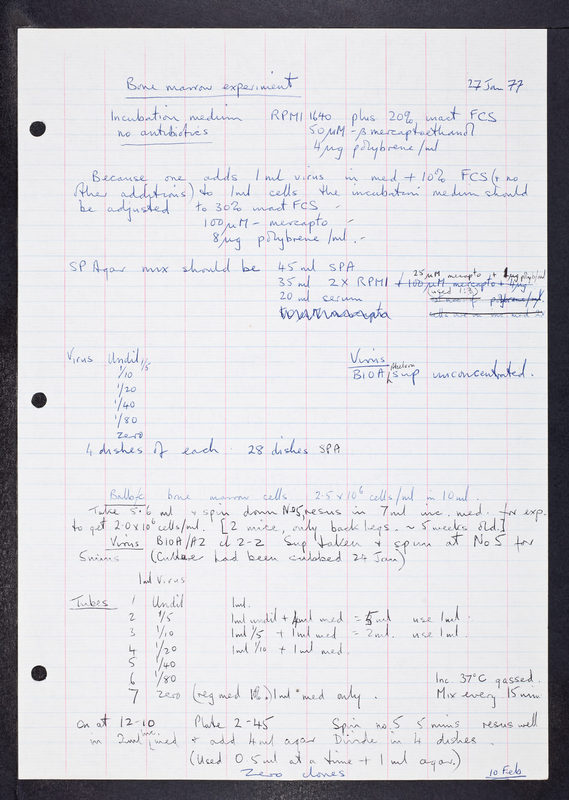 Bone marrow experiment 27 Jan 77
Incubation medium RPMI 1640 plus 20% inact FCS
no antibiotics 50 µM - β mercaptoethanol
4 µg polybrene/ml
Because one adds 1 ml virus in med + 10% FCS (+ no
other additions) to 1 ml cells the incubation medium should
be adjusted to 30% inact FCS -
100 µM - mercapto -
8 µg polybrene/ml. -
25 µM mercapto + 1 µg polyb/ml
SP Agar mix should be 45 ml SPA
35 ml 2 x RPMI + 100 µM mercapto + 4 µg
(used 1:3)
20 ml serum polybrene/ml
Virus Undil 1/5
1/10
1/20
1/40
1/80
zero
Virus
B10A sup unconcentrated.
4 dishes of each 28 dishes SPA
Balb/c bone marrow cells 2.5 x 10⁶ cells/ml in 10 ml.
Take 5.6 ml + spin down No 5, resus in 7 ml inc. med. for exp.
to get 2.0 x 10⁶ cells/ml. [2 mice, only back legs. ~ 5 weeks old.]
Virus B10A/A2 cl 2-2 Sup taken + spun at No 5 for
5 mins (Culture had been subbed 24 Jan)
1 ml virus
Tubes 1 Undil 1 ml.
2 1/5 1 ml undil + 4 ml med = 5 ml use 1 ml.
3 1/10 1 ml 1/5 + 1 ml med = 2 ml. use 1 ml.
4 1/20 1 ml 1/10 + 1 ml med.
5 1/40
6 1/80 Inc. 37°C gassed.
7 zero (reg med 10%) 1 ml med only. Mix every 15 min
On at 12-10 Plate 2-45 Spin no. 5 5 mins resus well
in 2 ml inc. med + add 4 ml agar Divide in 4 dishes.
(Used 0.5 ml at a time + 1 ml agar.)
Zero clones 10 Feb